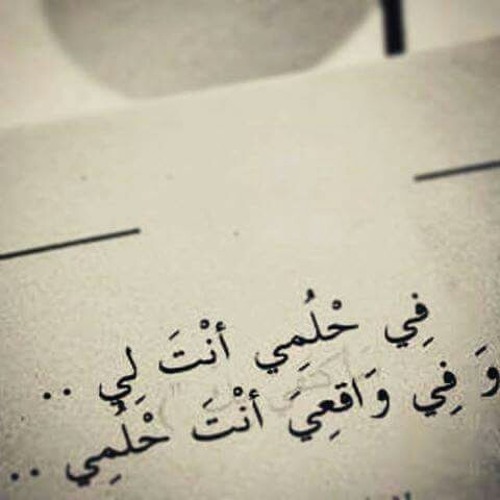 فِي حْلُمِي أنْتَ لِي ..
وَ فِي وَاقعِيَ أنْتَ حْلُمِي ..